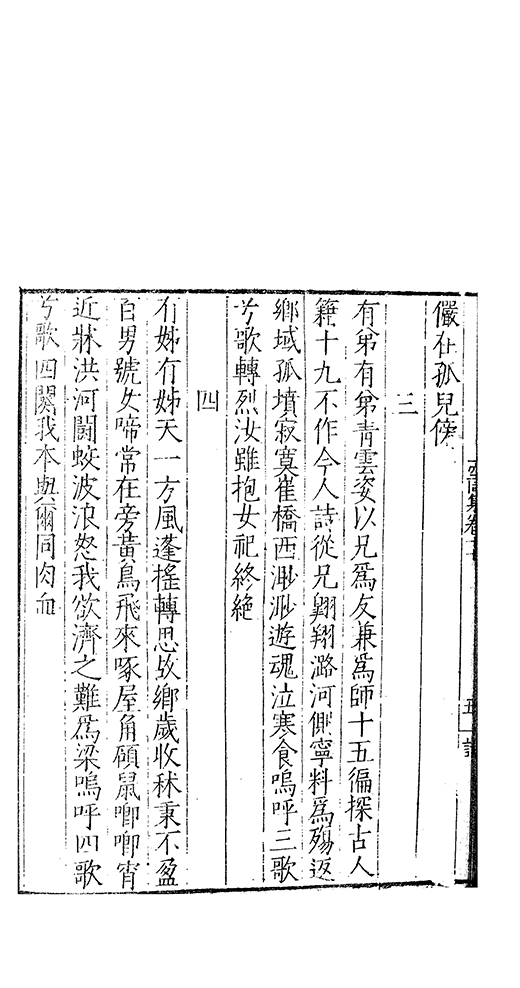 儼在孤兒傍
三
有弟有弟青雲姿以兄爲友兼爲師十五徧探古人
籍十九不作今人詩從兄翺翔潞河側寧料爲殤返
鄉域孤墳寂寞崔橋西渺渺遊魂泣寒食嗚呼三歌
兮歌轉烈汝雖抱女祀終絶
四
有姊有姊天一方風蓬搖轉思故鄉歲收秫秉不盈
百男號女啼常在旁黃鳥飛來啄屋角碩鼠唧唧宵
近牀洪河鬭蛟波浪怒我欲濟之難爲梁嗚呼四歌
兮歌四闋我本與爾同肉血